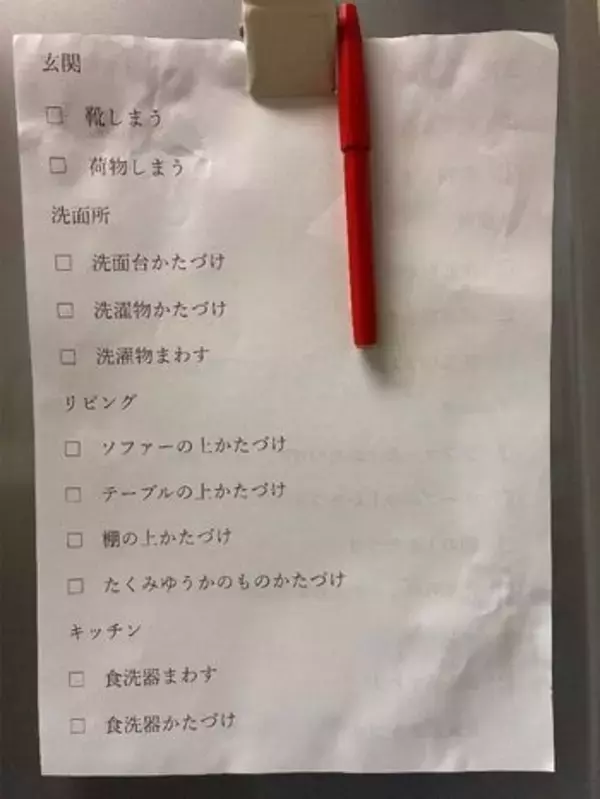 玄関
□ 靴しまう
□ 荷物しまう
洗面所
□ 洗面台かたづけ
□ 洗濯物かたづけ
□ 洗濯物まわす
リビング
□ ソファーの上かたづけ
□ テーブルの上かたづけ
□ 棚の上かたづけ
□ たくみゆうかのものかたづけ
キッチン
□ 食洗器まわす
□ 食洗器かたづけ